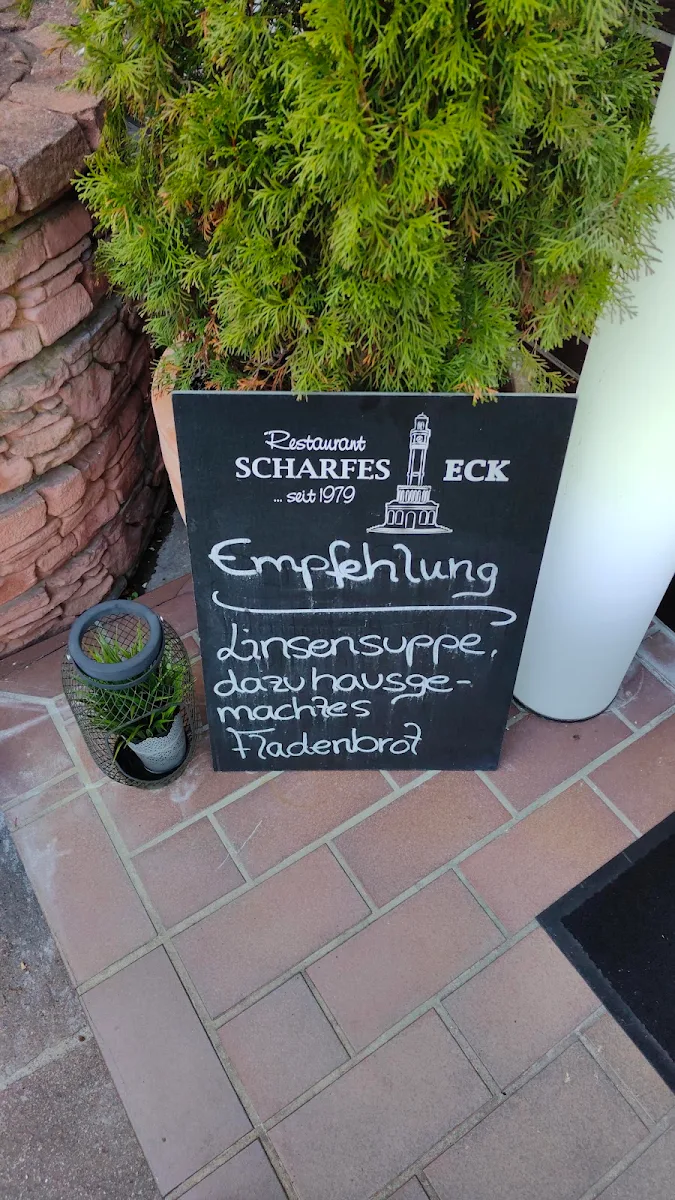 Restaurant
SCHARFES ECK
... seit 1979
Empfehlung
Linsensuppe,
dazu hausge-
machtes
Fladenbrot